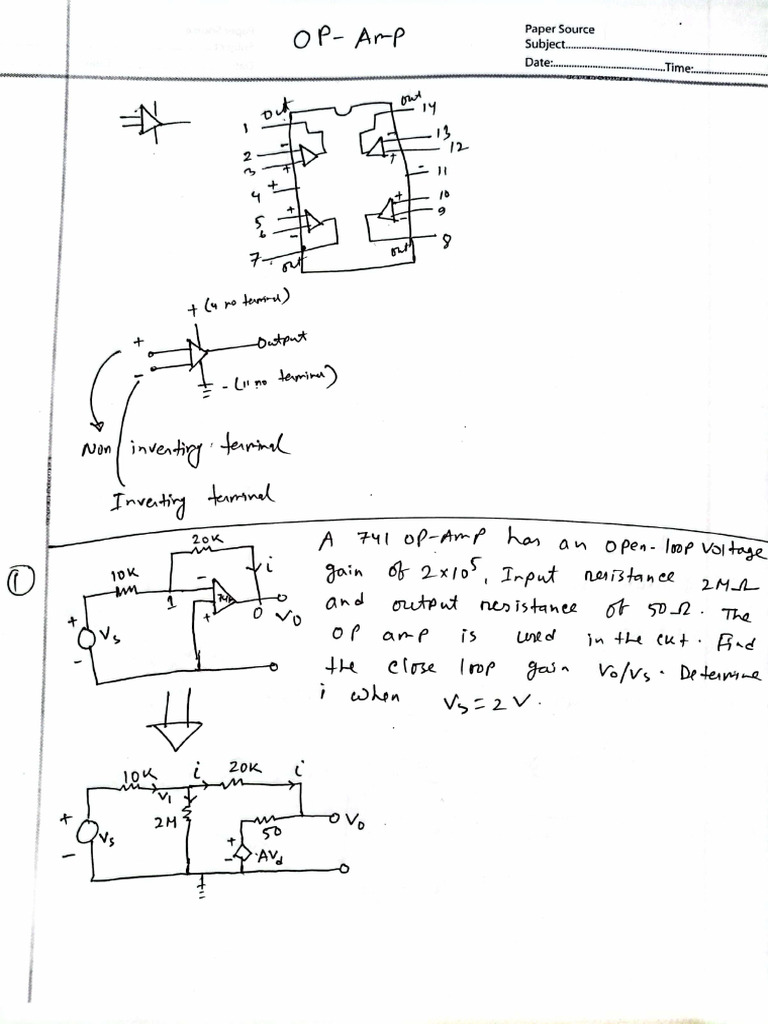 OP-Amp
Paper Source
Subject
Date: Time:
out out
1 14
- -
2 13
3 + + 12
4 + - 11
5 + + 10
6 - - 9
7 8
out out
+ (4 no terminal)
+ Output
-
- (11 no terminal)
Non inverting terminal
Inverting terminal
①
20K
i
10K
1 - 741 +
0 V0
+ Vs -
A 741 OP-Amp has an open-loop voltage
gain of 2×10⁵, Input resistance 2MΩ
and output resistance of 50Ω. The
OP amp is used in the ckt. Find
the close loop gain V0/Vs. Determine
i when Vs = 2 V.
10K i 20K i
V1
+ 2M 50 V0
Vs + AVd
- -